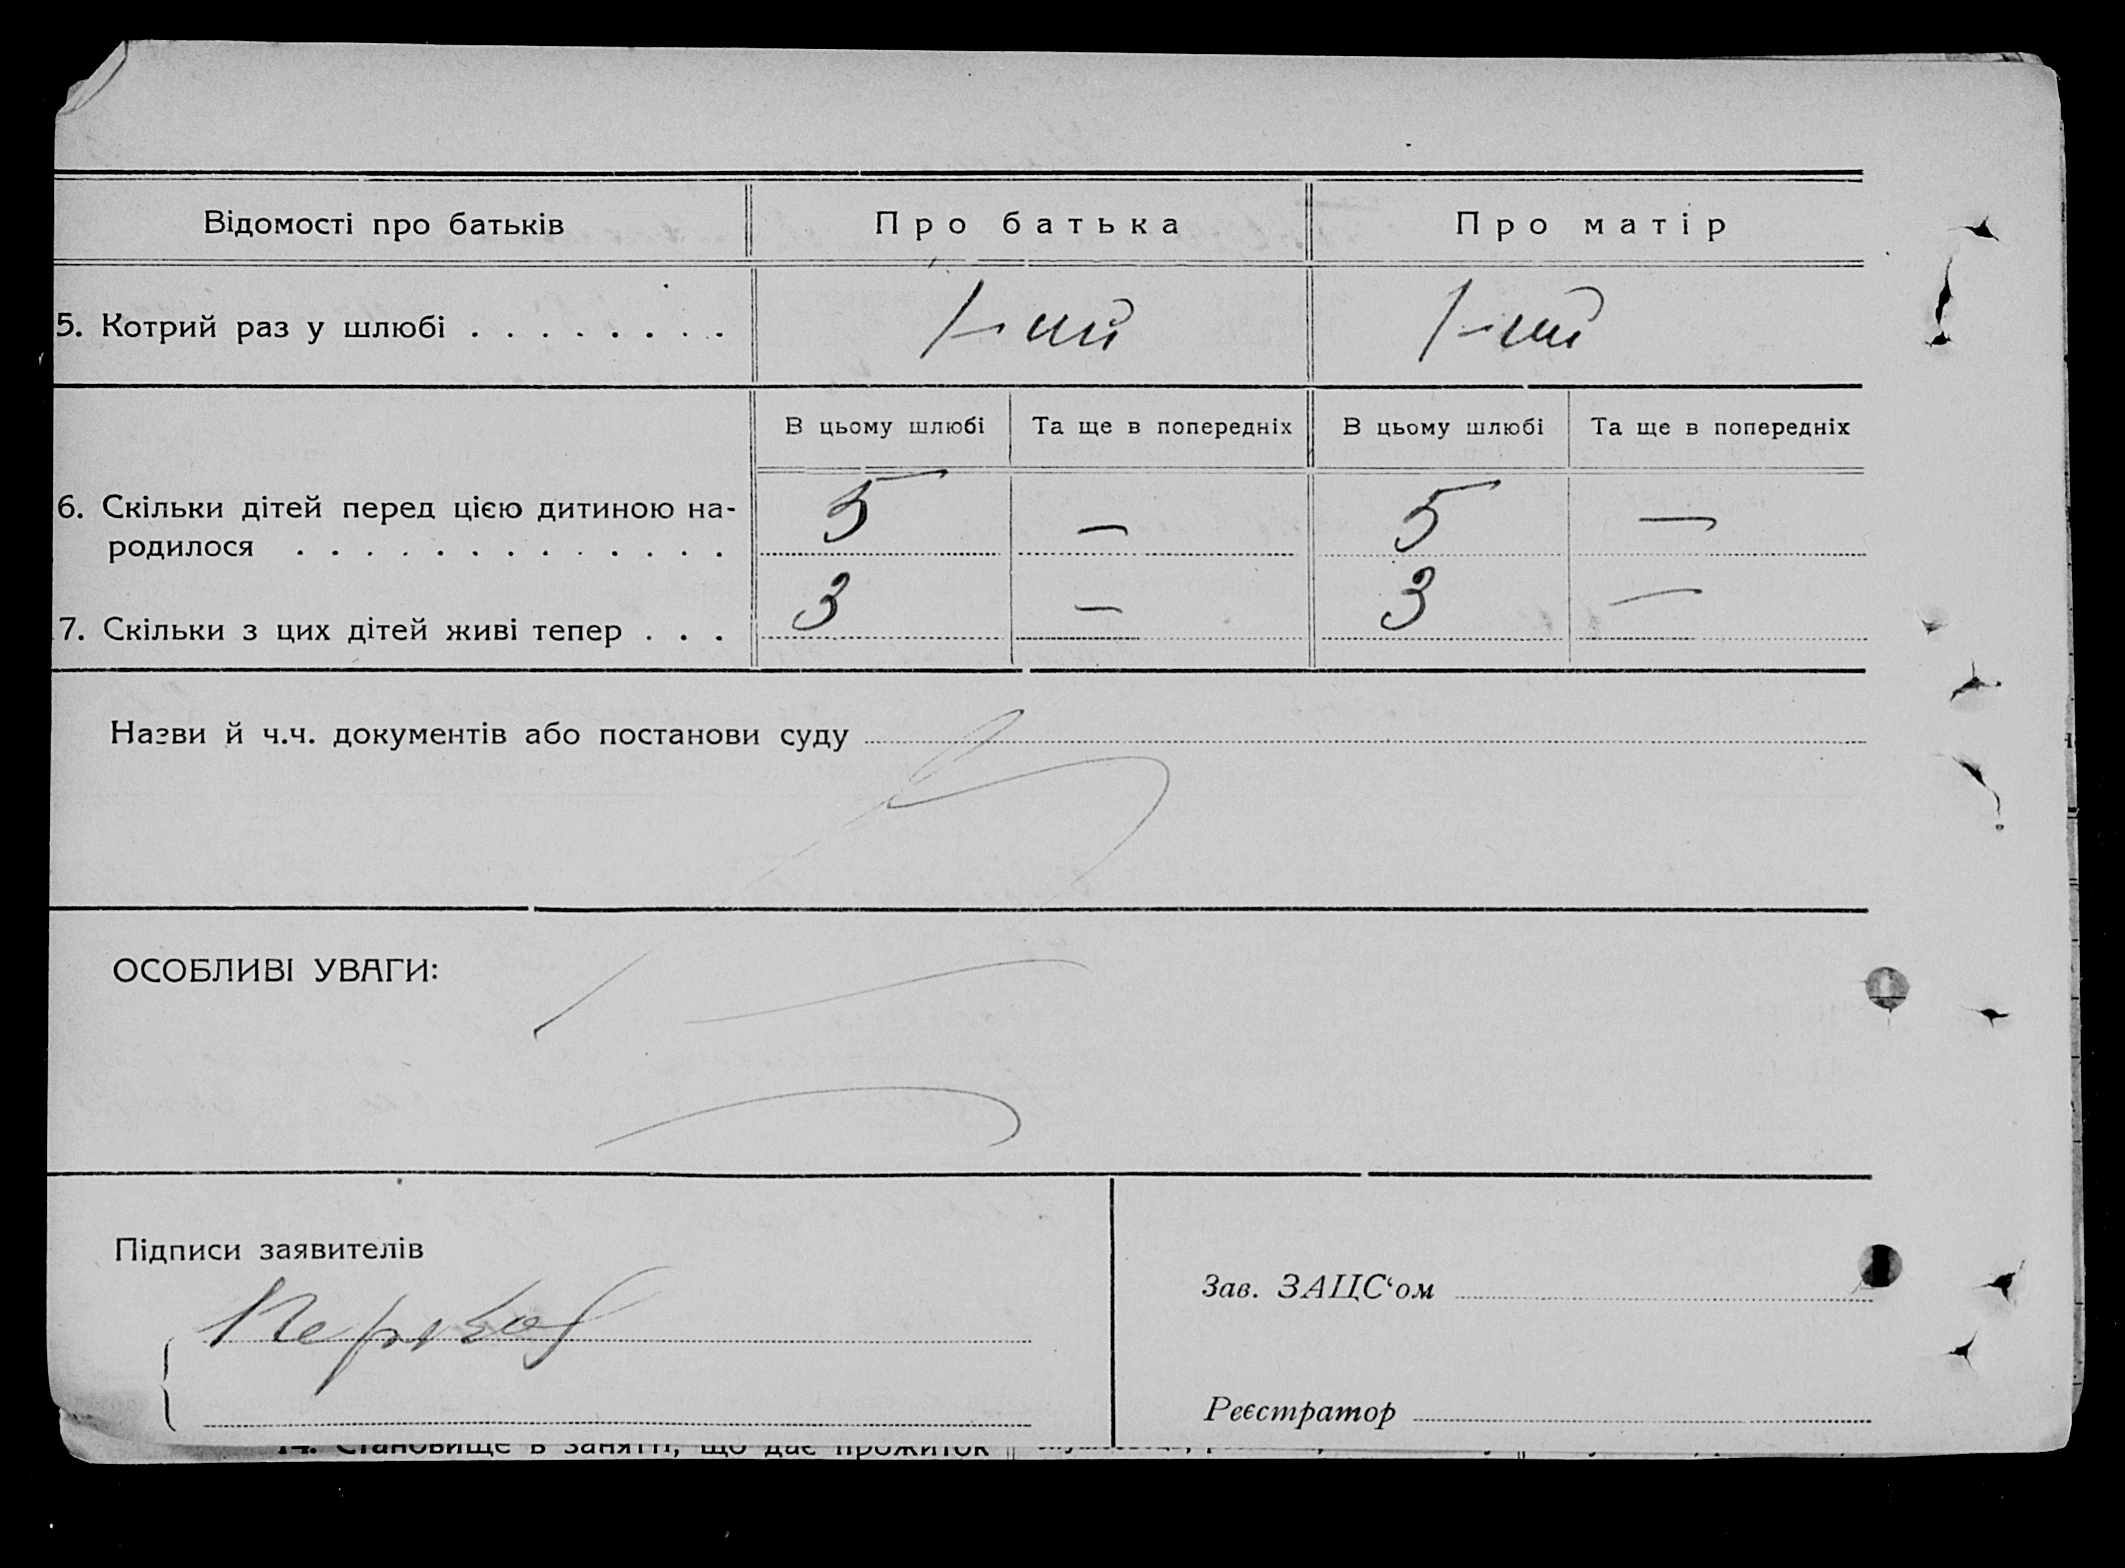 Відомості про батьків Про батька Про матір
5. Котрий раз у шлюбі . . . . . . . . 1-ший 1-ший
В цьому шлюбі Та ще в попередніх В цьому шлюбі Та ще в попередніх
6. Скільки дітей перед цією дитиною на-
родилося . . . . . . . . . . . . . 5 — 5 —
7. Скільки з цих дітей живі тепер . . . 3 — 3 —
Назви й ч.ч. документів або постанови суду
ОСОБЛИВІ УВАГИ:
Підписи заявителів
Зав. ЗАЦС‘ом
Реєстратор
14. Становище в занятті, що дає прожиток